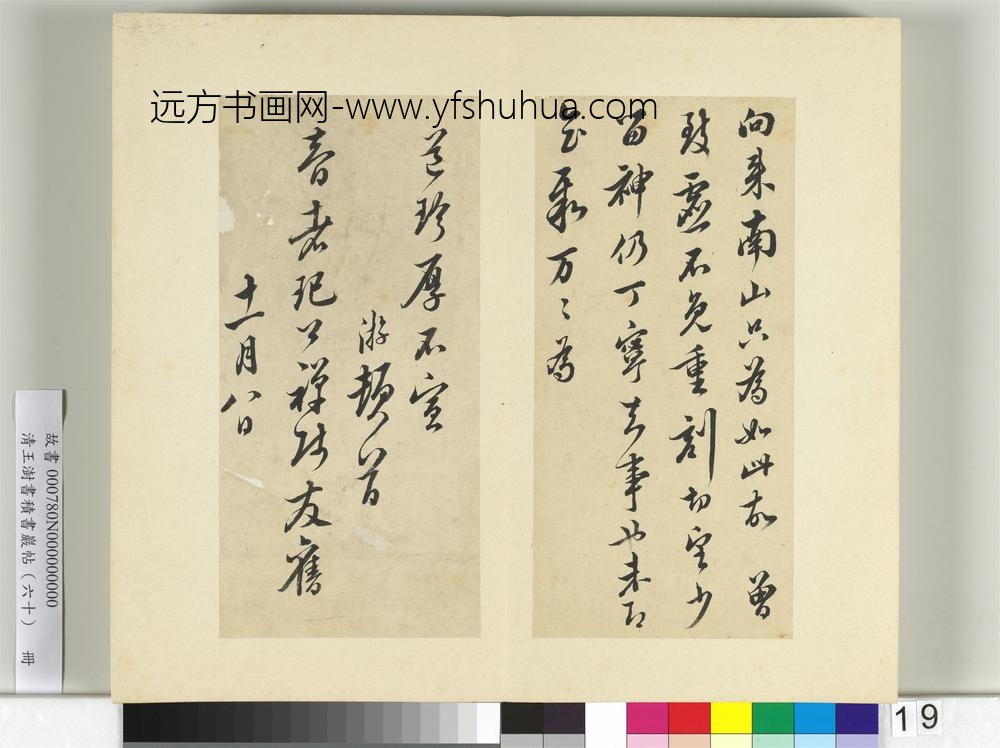 远方书画网-www.yfshuhua.com
向来南山只为如此故 曾
致虚不免重刻切望少
留神仍丁寧去事也未即
会聚万〻為
道珍厚不宣
游頓首
音老記公禅师友舊
十一月八日
故書 000780N000000000
清王澍書積書巖帖(六十) 冊
19